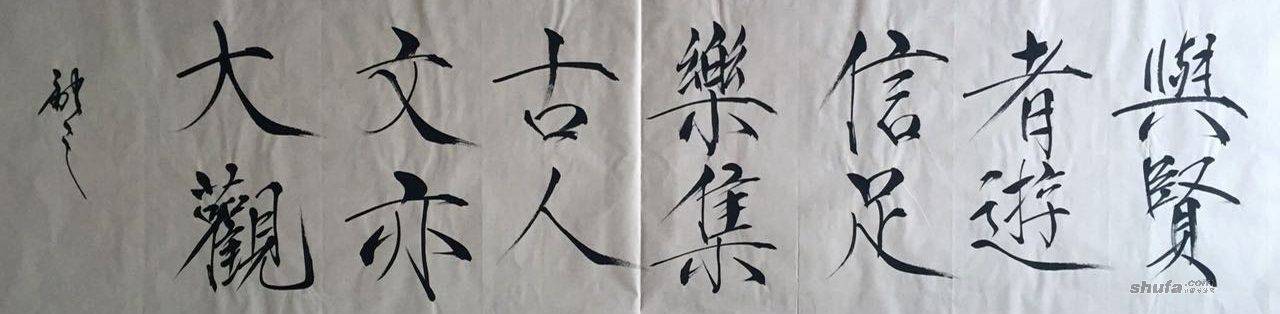 與賢
者遊
信足
樂集
古人
文亦
大觀
shufa.com